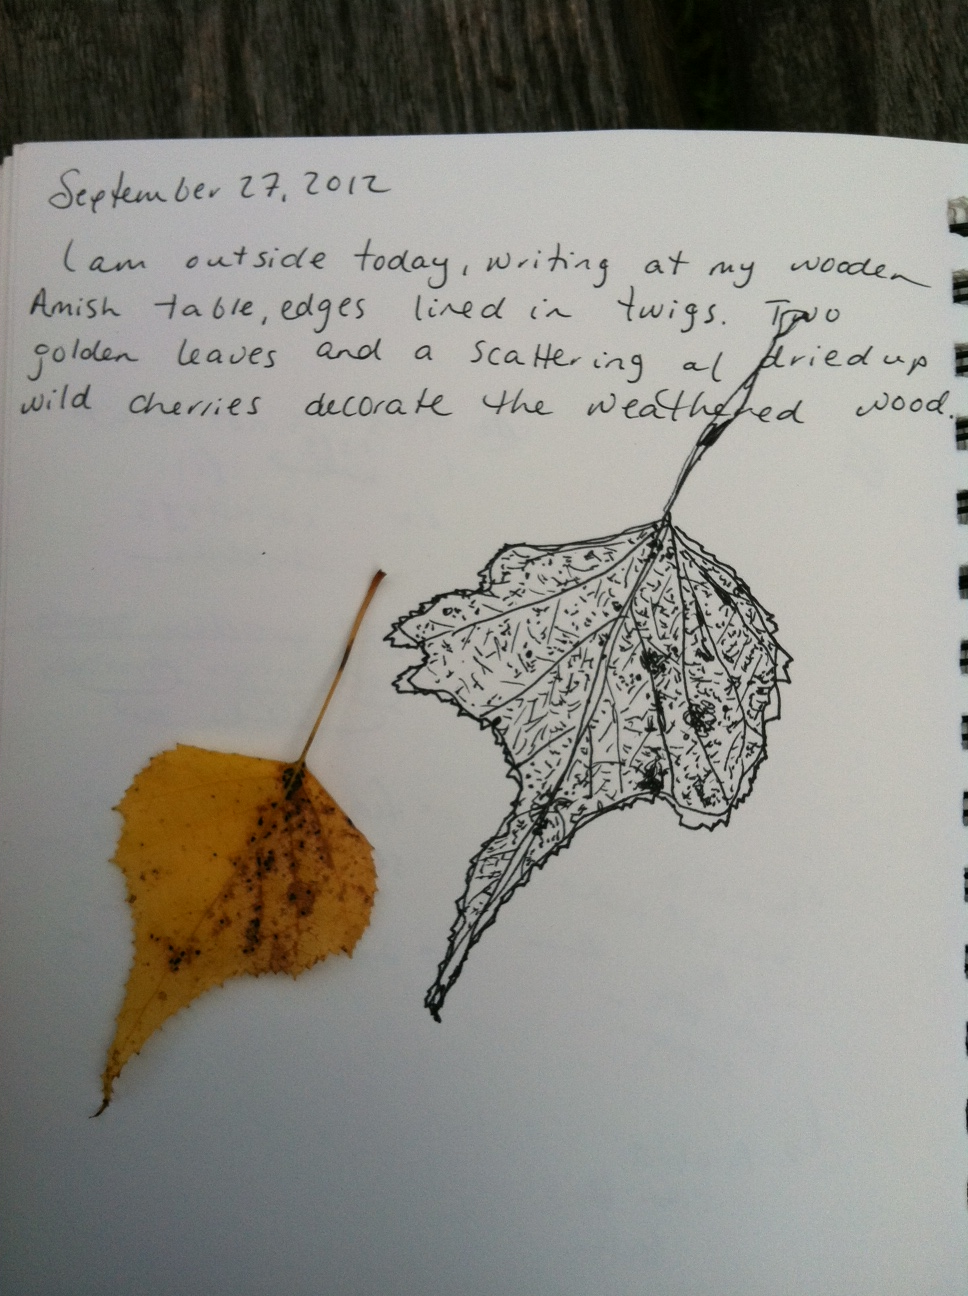 September 27, 2012
I am outside today, writing at my wooden
Amish table, edges lined in twigs. Two
golden leaves and a scattering of dried up
wild cherries decorate the weathered wood.